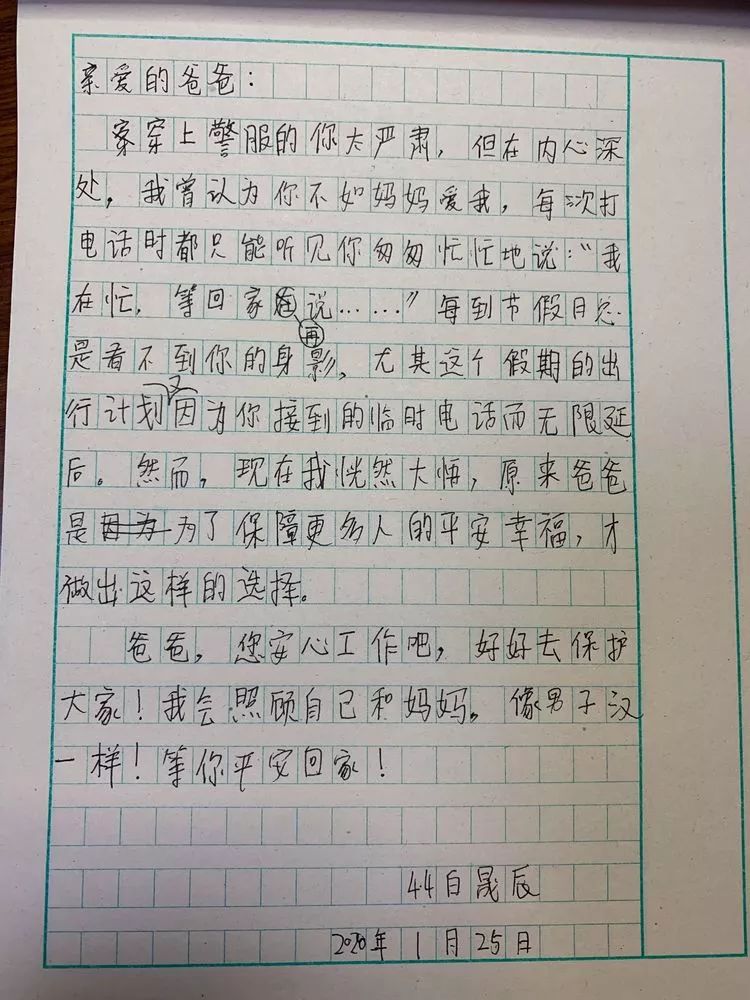 亲爱的爸爸：
穿穿上警服的你太严肃，但在内心深
处，我曾认为你不如妈妈爱我，每次打
电话时都只能听见你匆匆忙忙地说："我
在忙，等回家再说……"每到节假日总
是看不到你的身影，尤其这个假期的出
行计划又因为你接到的临时电话而无限延
后。然而，现在我恍然大悟，原来爸爸
是为了保障更多人的平安幸福，才
做出这样的选择。
爸爸，您安心工作吧，好好去保护
大家！我会照顾自己和妈妈。像男子汉
一样！等你平安回家！
44白晟辰
2020年1月25日